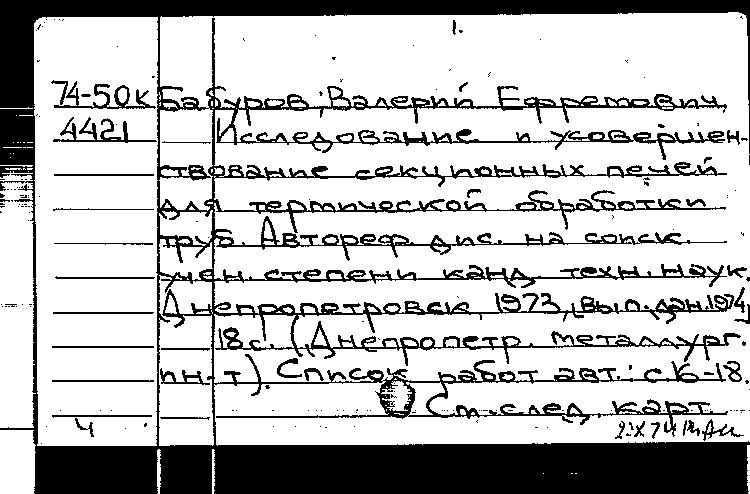 1.
74-50к Бабуров, Валерий Ефремович,
4421 Исследование и усовершен-
ствование секционных печей
для термической обработки
труб. Автореф. дис. на соиск.
учен. степени канд. техн. наук.
Днепропетровск, 1973, [вып. дан. 1974]
18 с. (Днепропетр. металлург.
ин-т). Список работ авт.: с. 16-18.
См. след. карт.
Ч